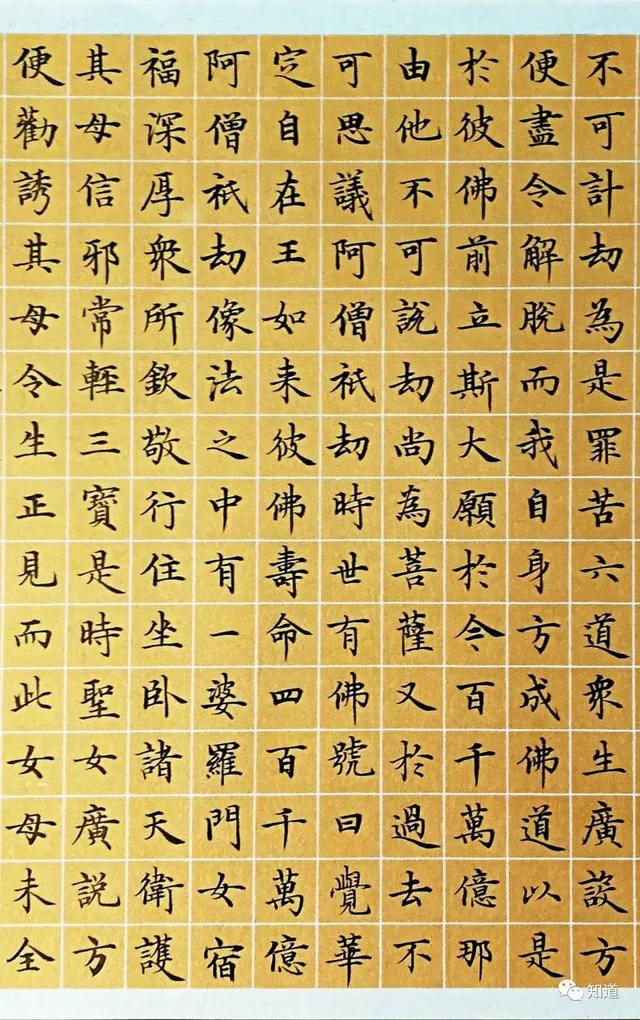 不可計劫為是罪苦六道衆生廣設方
便盡令解脫而我自身方成佛道以是
於彼佛前立斯大願於今百千萬億那
由他不可說劫尚為菩薩又於過去不
可思議阿僧祇劫時世有佛號曰覺華
㝎自在王如来彼佛壽命四百千萬億
阿僧祇劫像法之中有一婆羅門女宿
福深厚衆所欽敬行住坐卧諸天衛護
其母信邪常輕三寶是時聖女廣說方
便勸誘其母令生正見而此女母未全
知道